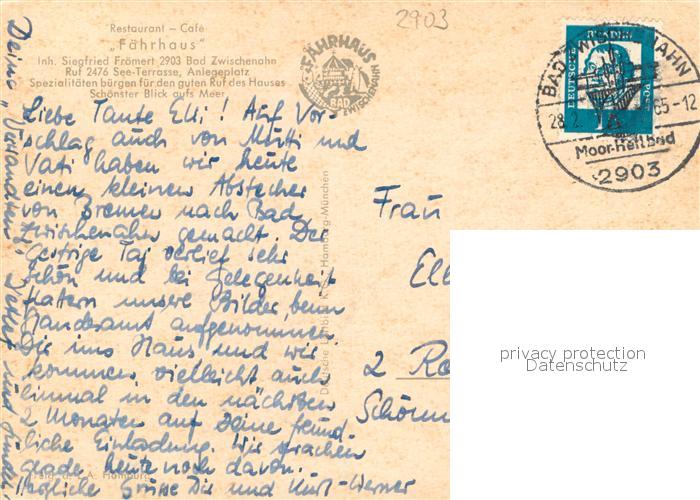 2903
Restaurant – Café
„Fährhaus"
Inh. Siegfried Frömert 2903 Bad Zwischenahn
Ruf 2476 See-Terrasse, Anlegeplatz
Spezialitäten bürgen für den guten Ruf des Hauses
Schönster Blick aufs Meer
FÄHRHAUS
BAD ZWISCHENAHN
DEUTSCHE BUNDESPOST
BAD ZWISCHENAHN
28.2. 65-12
Moor-Heilbad
2903
Liebe Tante Elli! Auf Vor-
schlag auch von Mutti und
Vati haben wir heute
einen kleinen Abstecher
von Bremen nach Bad
Zwischenahn gemacht. Der
gestrige Tag verlief sehr
schön und bei Gelegenheit
flattern unsere Bilder, beim
Standesamt aufgenommen,
Dir ins Haus und wir
kommen vielleicht auch
einmal in den nächsten
2 Monaten auf Deine freund-
liche Einladung. Wir sprachen
grade heute noch davon.
Herzliche Grüsse Dir und Kurt-Werner
Deine
und
Frau
Ell
2 Ro
Schönn
Hamburg-München
privacy protection
Datenschutz